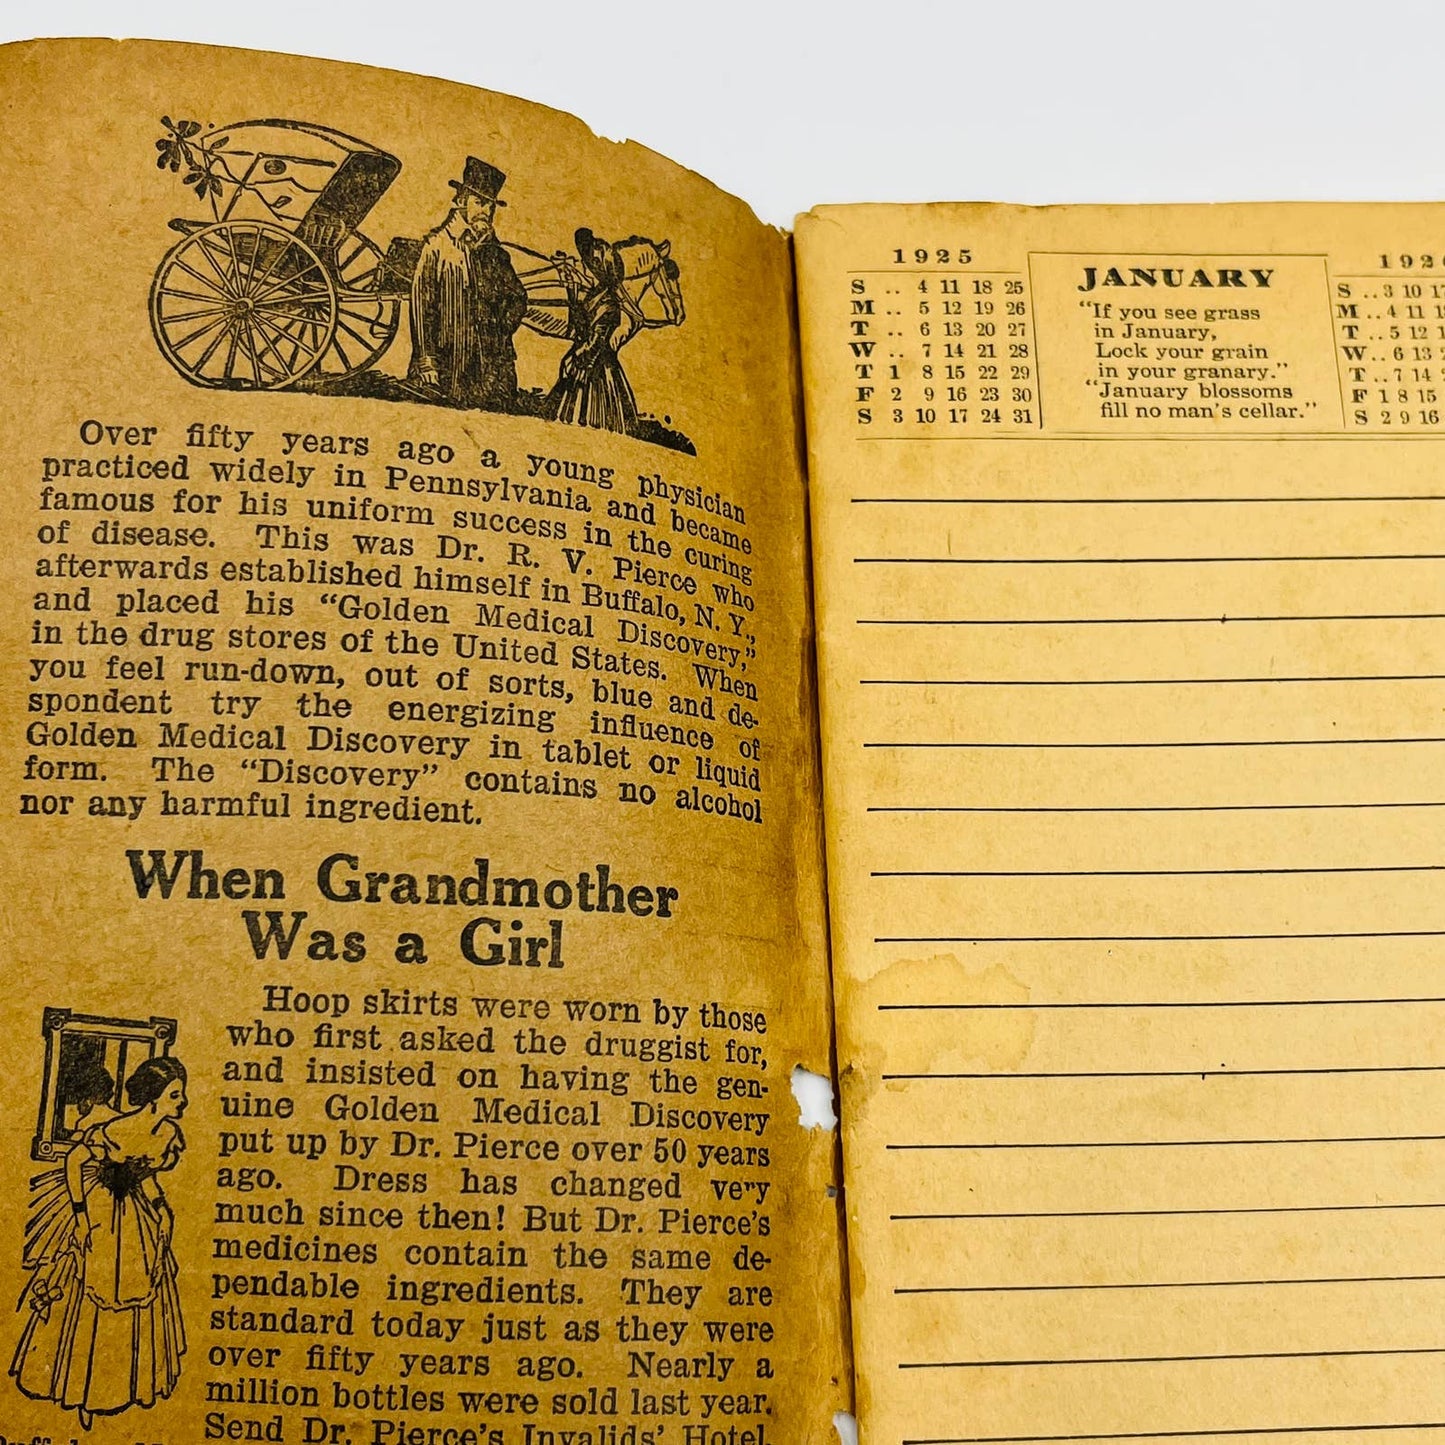 Over fifty years ago a young physician
practiced widely in Pennsylvania and became
famous for his uniform success in the curing
of disease. This was Dr. R. V. Pierce who
afterwards established himself in Buffalo, N. Y.,
and placed his “Golden Medical Discovery,”
in the drug stores of the United States. When
you feel run-down, out of sorts, blue and de-
spondent try the energizing influence of
Golden Medical Discovery in tablet or liquid
form. The “Discovery” contains no alcohol
nor any harmful ingredient.
When Grandmother
Was a Girl
Hoop skirts were worn by those
who first asked the druggist for,
and insisted on having the gen-
uine Golden Medical Discovery
put up by Dr. Pierce over 50 years
ago. Dress has changed very
much since then! But Dr. Pierce's
medicines contain the same de-
pendable ingredients. They are
standard today just as they were
over fifty years ago. Nearly a
million bottles were sold last year.
Send Dr. Pierce's Invalids' Hotel,
1925
S .. 4 11 18 25
M .. 5 12 19 26
T .. 6 13 20 27
W .. 7 14 21 28
T 1 8 15 22 29
F 2 9 16 23 30
S 3 10 17 24 31
JANUARY
“If you see grass
in January,
Lock your grain
in your granary.”
“January blossoms
fill no man's cellar.”
192
S .. 3 10
M .. 4 11
T .. 5 12
W .. 6 13
T .. 7 14
F 1 8 15
S 2 9 16